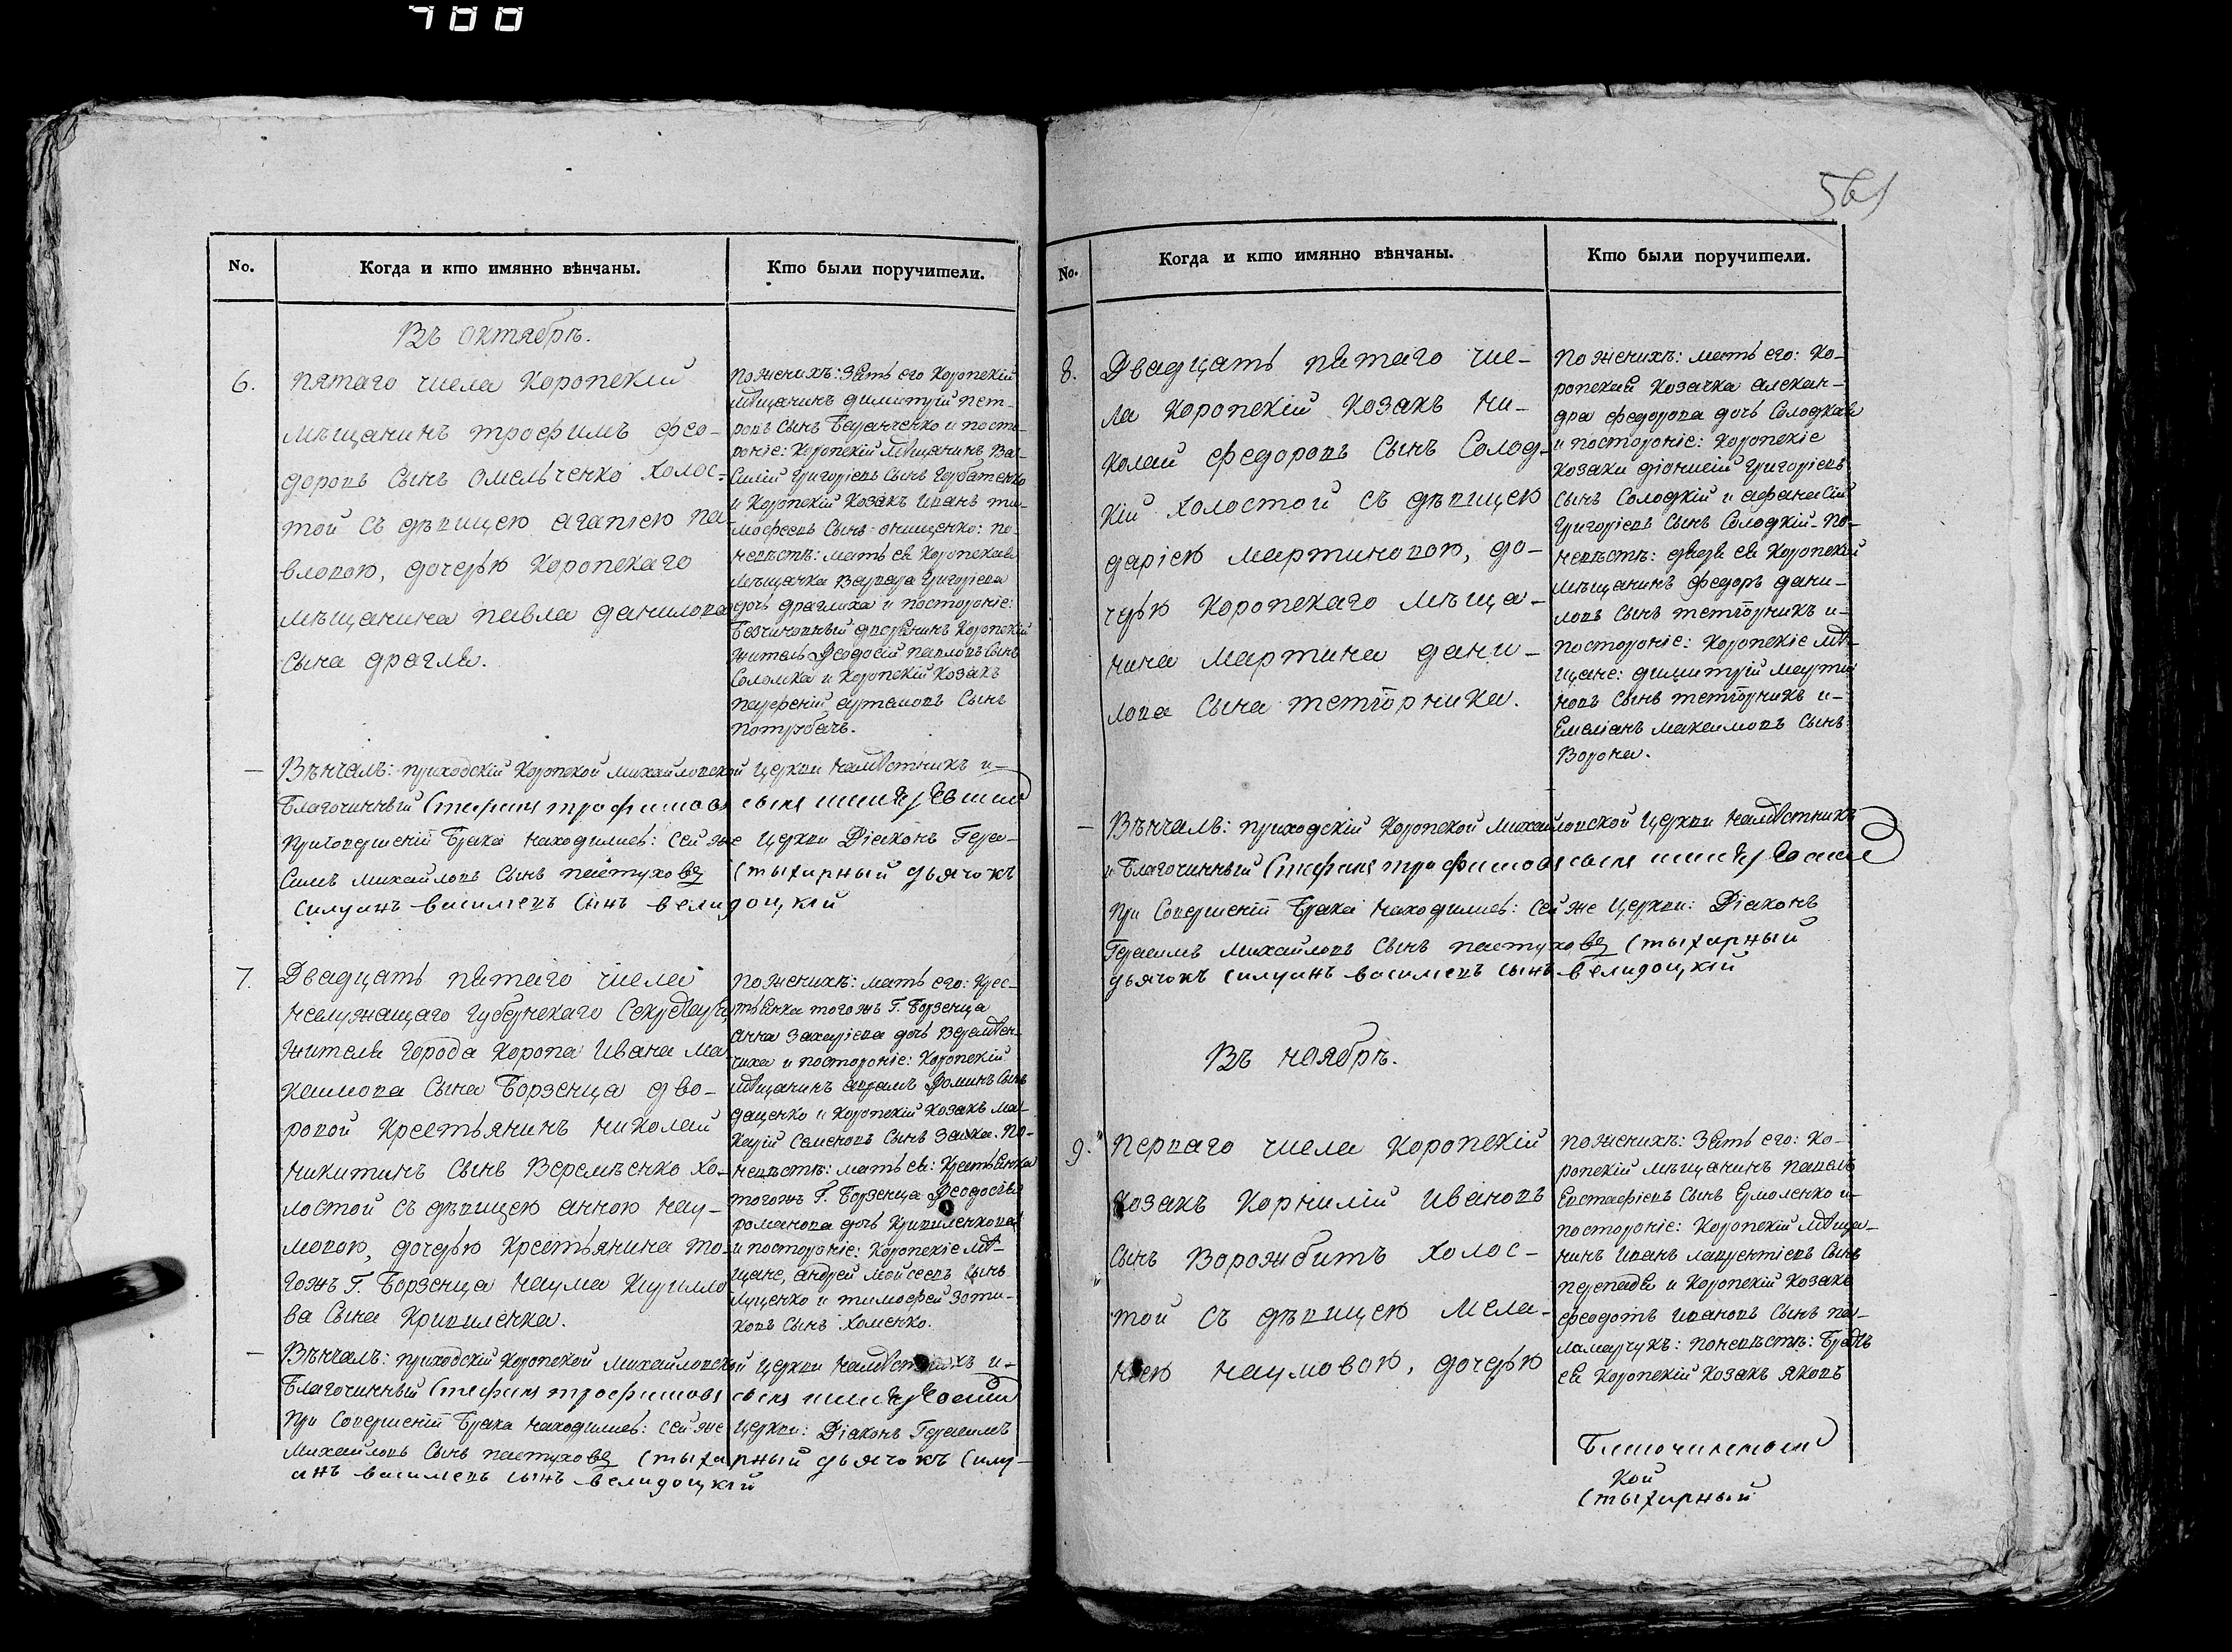 700
561
No.
Когда и кто имянно вѣнчаны.
Кто были поручители.
Въ октябрѣ.
6.
пятаго числа Коропскій
мѣщанинъ трофимъ фео-
доровъ Сынъ Омельченко холос-
той съ дѣвицею агапіею па-
вловою, дочерью Коропскаго
мѣщанина павла данилова
сына драгля.
По женихѣ: Зять его Коропскій
мѣщанинъ димитрій пет-
ровъ сынъ и посто-
роніе: Коропскій мѣщанинъ Ва-
силій Григоріевъ Сынъ Горбатенко
и Коропскій Козакъ Иванъ ти-
мофеевъ Сынъ онищенко: по
невѣстѣ: мать ея Коропская
мѣщанка Варвара Григоріева
дочь драглиха и постороніе:
Безчиновный дворянинъ Коропскій
житель Феодосій павловъ Сынъ
Соломка и Коропскій Козакъ
парфеній артемовъ Сынъ
потребачъ.
— Вѣнчалъ: приходскій Коропской михайловской Церкви намѣстникъ и
благочинный Стефанъ трофимовъ сынъ
при совершеніи брака находились: сей же Церкви Діаконъ Гера-
симъ михайловъ Сынъ пастуховъ Стыхарный дьячокъ
силуанъ василіевъ сынъ велидоцкій
7.
Двадцать пятаго числа
неслужащаго Губернскаго Секретаря,
жителя города Коропа Ивана ма-
ксимова Сына Борзенца дво-
ровой Крестьянинъ николай
никитинъ сынъ Веремѣенко хо-
лостой съ дѣвицею анною нау-
мовою, дочерью Крестьянина то-
гожъ Г. Борзенца наума Кирилло
ва Сына Кривиленка.
По женихѣ: мать его: Крес-
тьянка тогожъ Г. Борзенца
анна Захаріева дочь Веремѣен-
чиха и постороніе: Коропскій
мѣщанинъ аврамъ Фоминъ Сынъ
даценко и Коропскій Козакъ ма-
карій Семеновъ Сынъ Заика. По-
невѣстѣ: мать ея: Крестьянка
тогожъ Г. Борзенца Феодосія
романова дочь Кривиленкова
и постороніе: Коропскіе мѣ-
щане, андрей мойсеевъ Сынъ
Луценко и тимофей Зоти-
ковъ Сынъ Хоменко.
— Вѣнчалъ: приходскій Коропской Михайловской Церкви намѣстникъ и-
благочинный Стефанъ трофимовъ сынъ
при Совершеніи брака находились: сей же Церкви: Діаконъ Герасимъ
Михайловъ Сынъ пастуховъ Стыхарный дьячокъ Силу-
анъ василіевъ сынъ велидоцкій
No.
Когда и кто имянно вѣнчаны.
Кто были поручители.
8.
Двадцать пятаго чис-
ла Коропскій Козакъ ни-
колай федоровъ Сынъ Солод-
кій холостой съ дѣвицею
даріею мартиновою, до-
черью Коропскаго мѣща-
нина мартина дани-
лова Сына тетюрника.
По женихѣ: мать его: Ко-
ропская Козачка алексан-
дра федорова дочь Солодкая
и постороніе: Коропскіе
козаки діонисій Григоріевъ
сынъ Солодкій и афанасій
Григоріевъ Сынъ Солодкій. По-
невѣстѣ: дядя ея Коропскій
мѣщанинъ федоръ дани-
ловъ Сынъ тетюрникъ и-
постороніе: Коропскіе мѣ-
щане: димитрій марти
новъ Сынъ тетюрникъ и-
Емеліанъ максимовъ Сынъ
Ворона.
— Вѣнчалъ: приходскій Коропской Михайловской Церкви намѣстникъ
и благочинный Стефанъ трофимовъ сынъ
при Совершеніи брака находились: сей же Церкви: Діаконъ
Герасимъ михайловъ Сынъ пастуховъ Стыхарный
дьячокъ Силуанъ василіевъ сынъ велидоцкій
Въ ноябрѣ.
9.
перваго числа Коропскій
Козакъ Корнилій Ивановъ
сынъ Ворожбитъ холос-
той съ дѣвицею мела-
ніею наумовою, дочерью
По женихѣ: Зять его: Ко-
ропскій мѣщанинъ павелъ
Евстафіевъ Сынъ Ермоленко и-
постороніе: Коропскій мѣща-
нинъ Иванъ лаврентіевъ Сынъ
перепадя и Коропскій Козакъ
феодотъ Ивановъ Сынъ па-
ламарчукъ: по невѣстѣ: братъ
ея Коропскій Козакъ яковъ
кой
Стыхарный